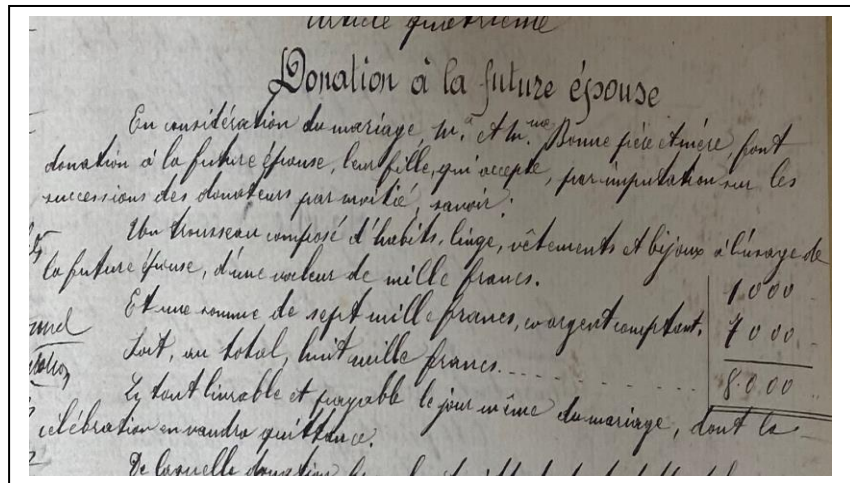 article quatrième
Donation à la future épouse
En considération du mariage, Mr. et Mme. Bonne père et mère font
donation à la future épouse, leur fille, qui accepte, par imputation sur les
successions des donateurs par moitié, savoir:
Un trousseau composé d'habits, linge, vêtements et bijoux à l'usage de
la future épouse, d'une valeur de mille francs. 1000
Et une somme de sept mille francs, en argent comptant. 7000
Soit, au total, huit mille francs. .......... 8.000 "
Le tout livrable et payable le jour même du mariage, dont la
célébration en vaudra quittance.
De laquelle donation